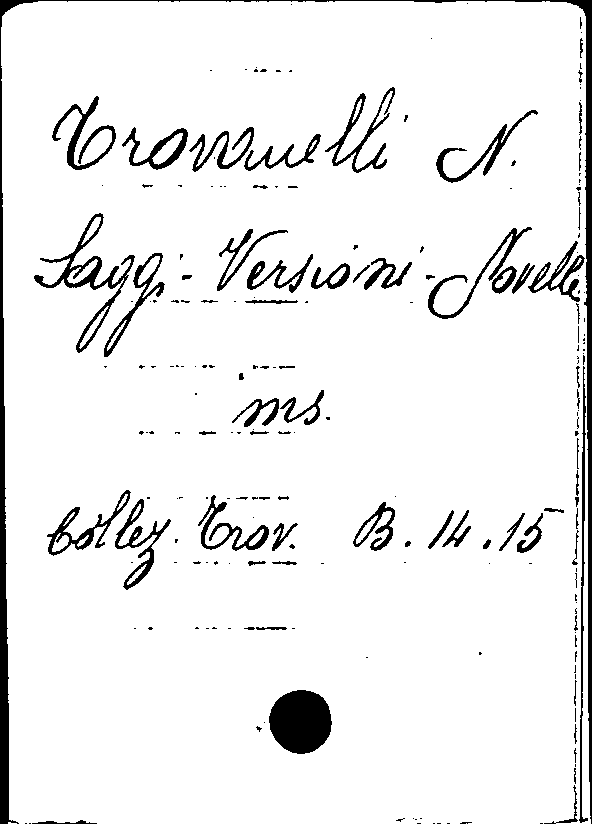 Trovanelli N.
Saggi - Versioni - Novelle
ms.
Collez. Trov. B. 14. 15